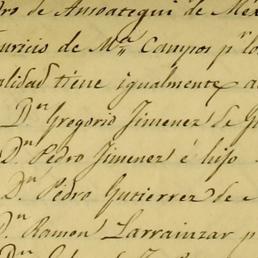 dro de Amoategui de Méx
auricio de Mª Campos pr lo
alidad tiene igualmente a
Dn Gregorio Jimenez de G
Dn Pedro Jimenez é hijo
Dn Pedro Gutierrez de
Dn Ramon Larrainzar p